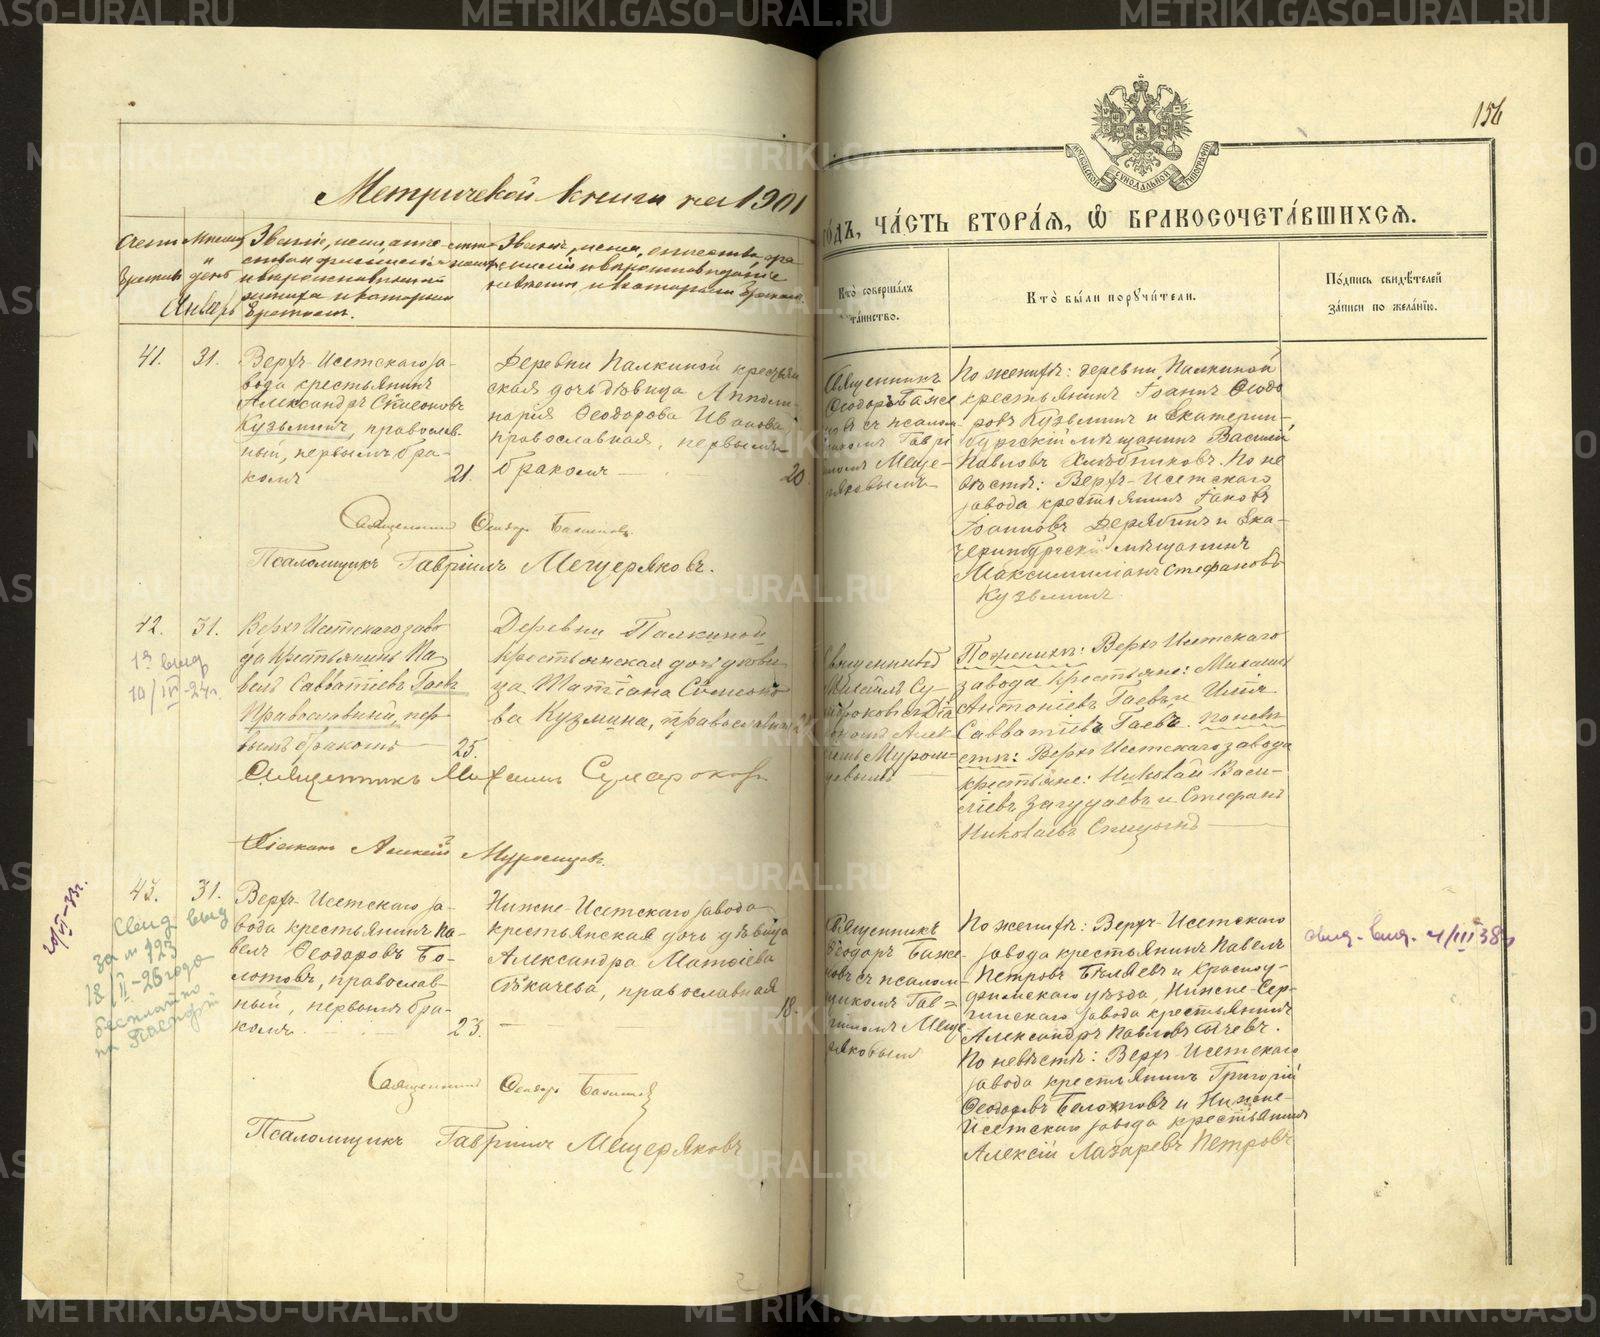 156
Метрической книги на 1901
годъ, часть вторая, ѿ бракосочетавшихся.
Счетъ
браковъ
Мѣсяцъ
и
день
Январь
Званіе, имя, отче-
ство, фамилія
и вѣроисповѣданіе
жениха и которымъ
бракомъ.
Званіе, имя, отчество, фа-
милія и вѣроисповѣданіе
невѣсты, и которымъ бракомъ.
Кто совершалъ
таинство.
Кто были поручители.
Подпись свидѣтелей
записи по желанію.
41.
31.
Верхъ-Исетскаго за-
вода крестьянинъ
Александръ Симеоновъ
Кузьминъ, православ-
ный, первымъ бра-
комъ
21.
Деревни Палкиной крестьян
ская дочь дѣвица Апполи-
нария Ѳеодорова Иванова
православная, первымъ
бракомъ
20.
Священникъ
Ѳеодоръ Баже
новъ съ псалом
щикомъ Гаври
иломъ Меще-
ряковымъ
По женихѣ: деревни Палкиной
крестьянинъ Іоаннъ Ѳеодо
ровъ Кузьминъ и Екатерин-
бургскій мѣщанинъ Василій
Павловъ Хлѣбниковъ. По не
вѣстѣ: Верхъ-Исетскаго
завода крестьянинъ Іаковъ
Іоанновъ Дерябинъ и Ека-
теринбургскій мѣщанинъ
Максимиліанъ Стефановъ
Кузьминъ.
Священникъ Ѳеодоръ Баженовъ.
Псаломщикъ Гавріилъ Мещеряковъ.
42.
31.
1е выд
10/IV-24г.
Верхъ Исетскаго заво
да крестьянинъ Па
велъ Савватіевъ Гаевъ
Православный, пер
вымъ бракомъ
25.
Деревни Палкиной
крестьянская дочь дѣви
ца Татіана Симеоно
ва Кузмина, православная
Священникъ
Михаилъ Су-
мароковъ съ Діа
кономъ Алек
сѣемъ Муром-
цевымъ
По женихѣ: Верхъ Исетскаго
завода крестьяне: Михаилъ
Антоніевъ Гаевъ и Илія
Савватіевъ Гаевъ. По невѣ
стѣ: Верхъ Исетскаго завода
крестьяне: Николай Васи-
ліевъ Загудаевъ и Стефанъ
Николаевъ Спицынъ
Священникъ Михаилъ Сумароковъ
Діаконъ Алексій Муромцевъ.
43.
31.
20/VI-33г.
Свид выд
за № 123
18/II-26 года
бесплатно
на паспорт
Верхъ-Исетскаго за-
вода крестьянинъ Па-
велъ Ѳеодоровъ Бо-
лотовъ, православ-
ный, первымъ бра-
комъ
23.
Нижне-Исетскаго завода
крестьянская дочь дѣвица
Александра Матѳіева
Бѣкачева, православная
18.
Священникъ
Ѳеодоръ Баже
новъ съ псалом
щикомъ Гав-
ріиломъ Меще
ряковымъ
По женихѣ: Верхъ-Исетскаго
завода крестьянинъ Павелъ
Петровъ Бѣляевъ и Красноу-
фимскаго уѣзда, Нижне-Сер-
гинскаго завода крестьянинъ
Александръ Павловъ
По невѣстѣ: Верхъ-Исетскаго
завода крестьянинъ Григорій
Ѳеодоровъ Болотовъ и Нижне-
Исетскаго завода крестьянинъ
Алексій Лазаревъ Петровъ
свид. выд. 4/III 38г
Священникъ Ѳеодоръ Баженовъ
Псаломщикъ Гавріилъ Мещеряковъ
METRIKI.GASO-URAL.RU